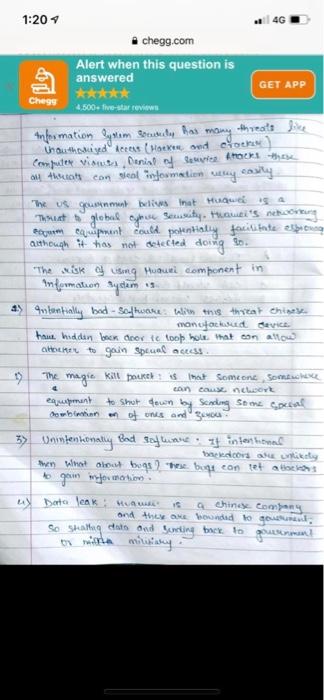 1:20
4G
chegg.com
Alert when this question is
answered
GET APP
Chegg
4,500+ five-star reviews
Information System Security has many threats like
Unauthorised Access (Hacker and cracker)
Computer Viruses, Denial of Service Attacks these
all threats can steal information very easily.
The US government belives that Huawei is a
Threat to global cyber security. Huawei's networking
equipment could potentially facilitate
although it has not detected doing so.
The risk of using Huawei component in
Information System is
Intentially bad - Software: With this threat chinese
manufactured device
have hidden back door or loop hole that can allow
attacker to gain special access.
The magic kill packet: is that someone, somewhere
can cause network
equipment to shut down by sending some special
combination of ones and zeros.
3) Unintentionally Bad Software: If intentional
backdoors are unlikely
then what about bugs? These bugs can let attackers
to gain information.
4) Data leak: Huawei is a chinese company
and they are bounded to government.
So sharing data and sending back to government
or military.